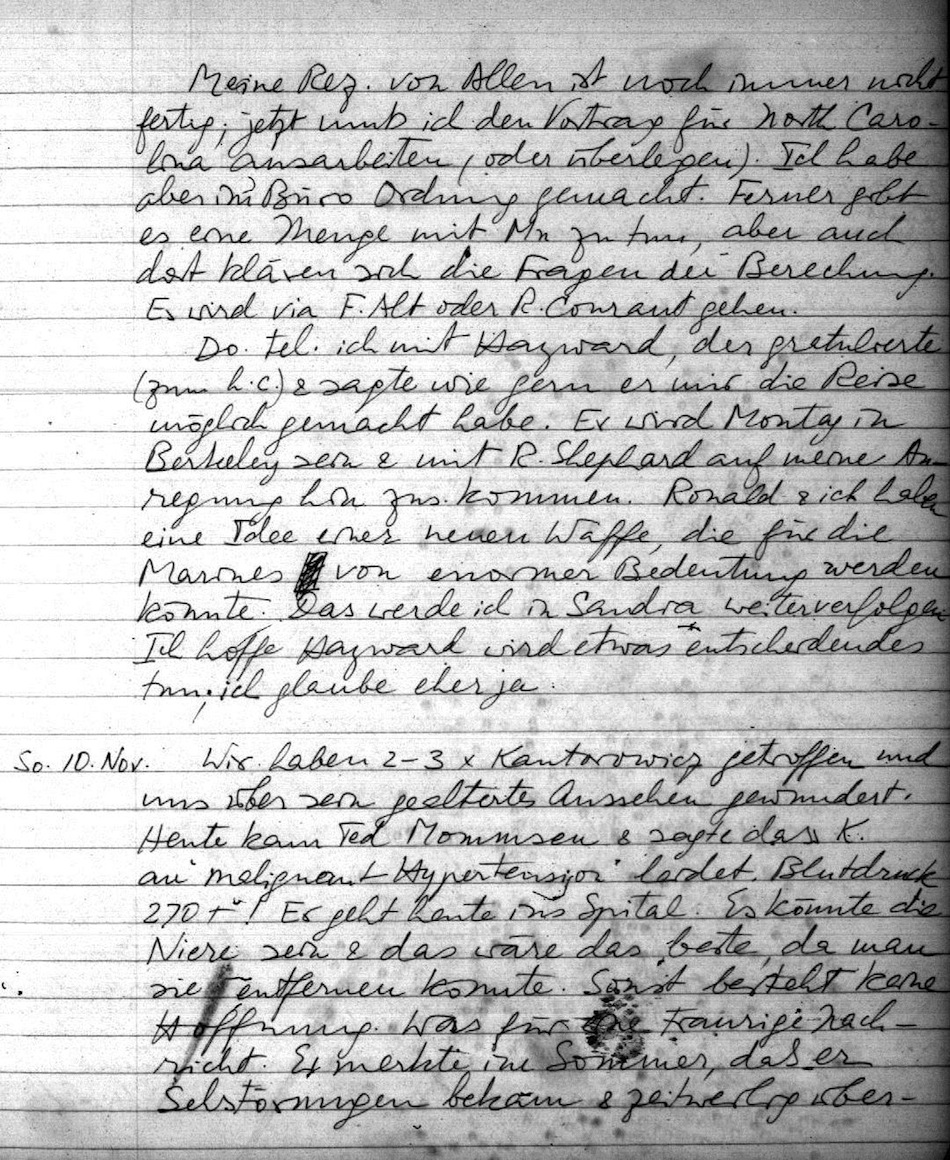 Meine Rez. von Allen ist noch immer nicht
fertig; jetzt muß ich den Vortrag für North Caro-
lina ausarbeiten (oder überlegen). Ich habe
aber im Büro Ordnung gemacht. Ferner gibt
es eine Menge mit Mn zu tun, aber auch
dort klären sich die Fragen der Berechnung.
Es wird via F. Alt oder R. Courant gehen.
Do. tel. ich mit Hayward, der gratulierte
(zum h.c.) & sagte wie gern er mir die Reise
möglich gemacht habe. Er wird Montag in
Berkeley sein & mit R. Shephard auf meine An-
regung hin zus. kommen. Ronald & ich haben
eine Idee einer neuen Waffe, die für die
Marines von enormer Bedeutung werden
könnte. Das werde ich in Sandia weiterverfolgen
Ich hoffe Hayward wird etwas entscheidendes
tun; ich glaube eher ja.
So. 10. Nov. Wir haben 2-3 x Kantorowicz getroffen und
uns über sein gealtertes Aussehen gewundert.
Heute kam Ted Mommsen & sagte dass K.
an "malignant Hypertension" leidet. Blutdruck
270+"! Er geht heute ins Spital. Es könnte die
Niere sein & das wäre das "beste", da man
sie entfernen könnte. Sonst besteht keine
Hoffnung. Was für eine traurige Nach-
richt. Er merkte im Sommer, daß er
Sehstörungen bekam & zeitweilig über-